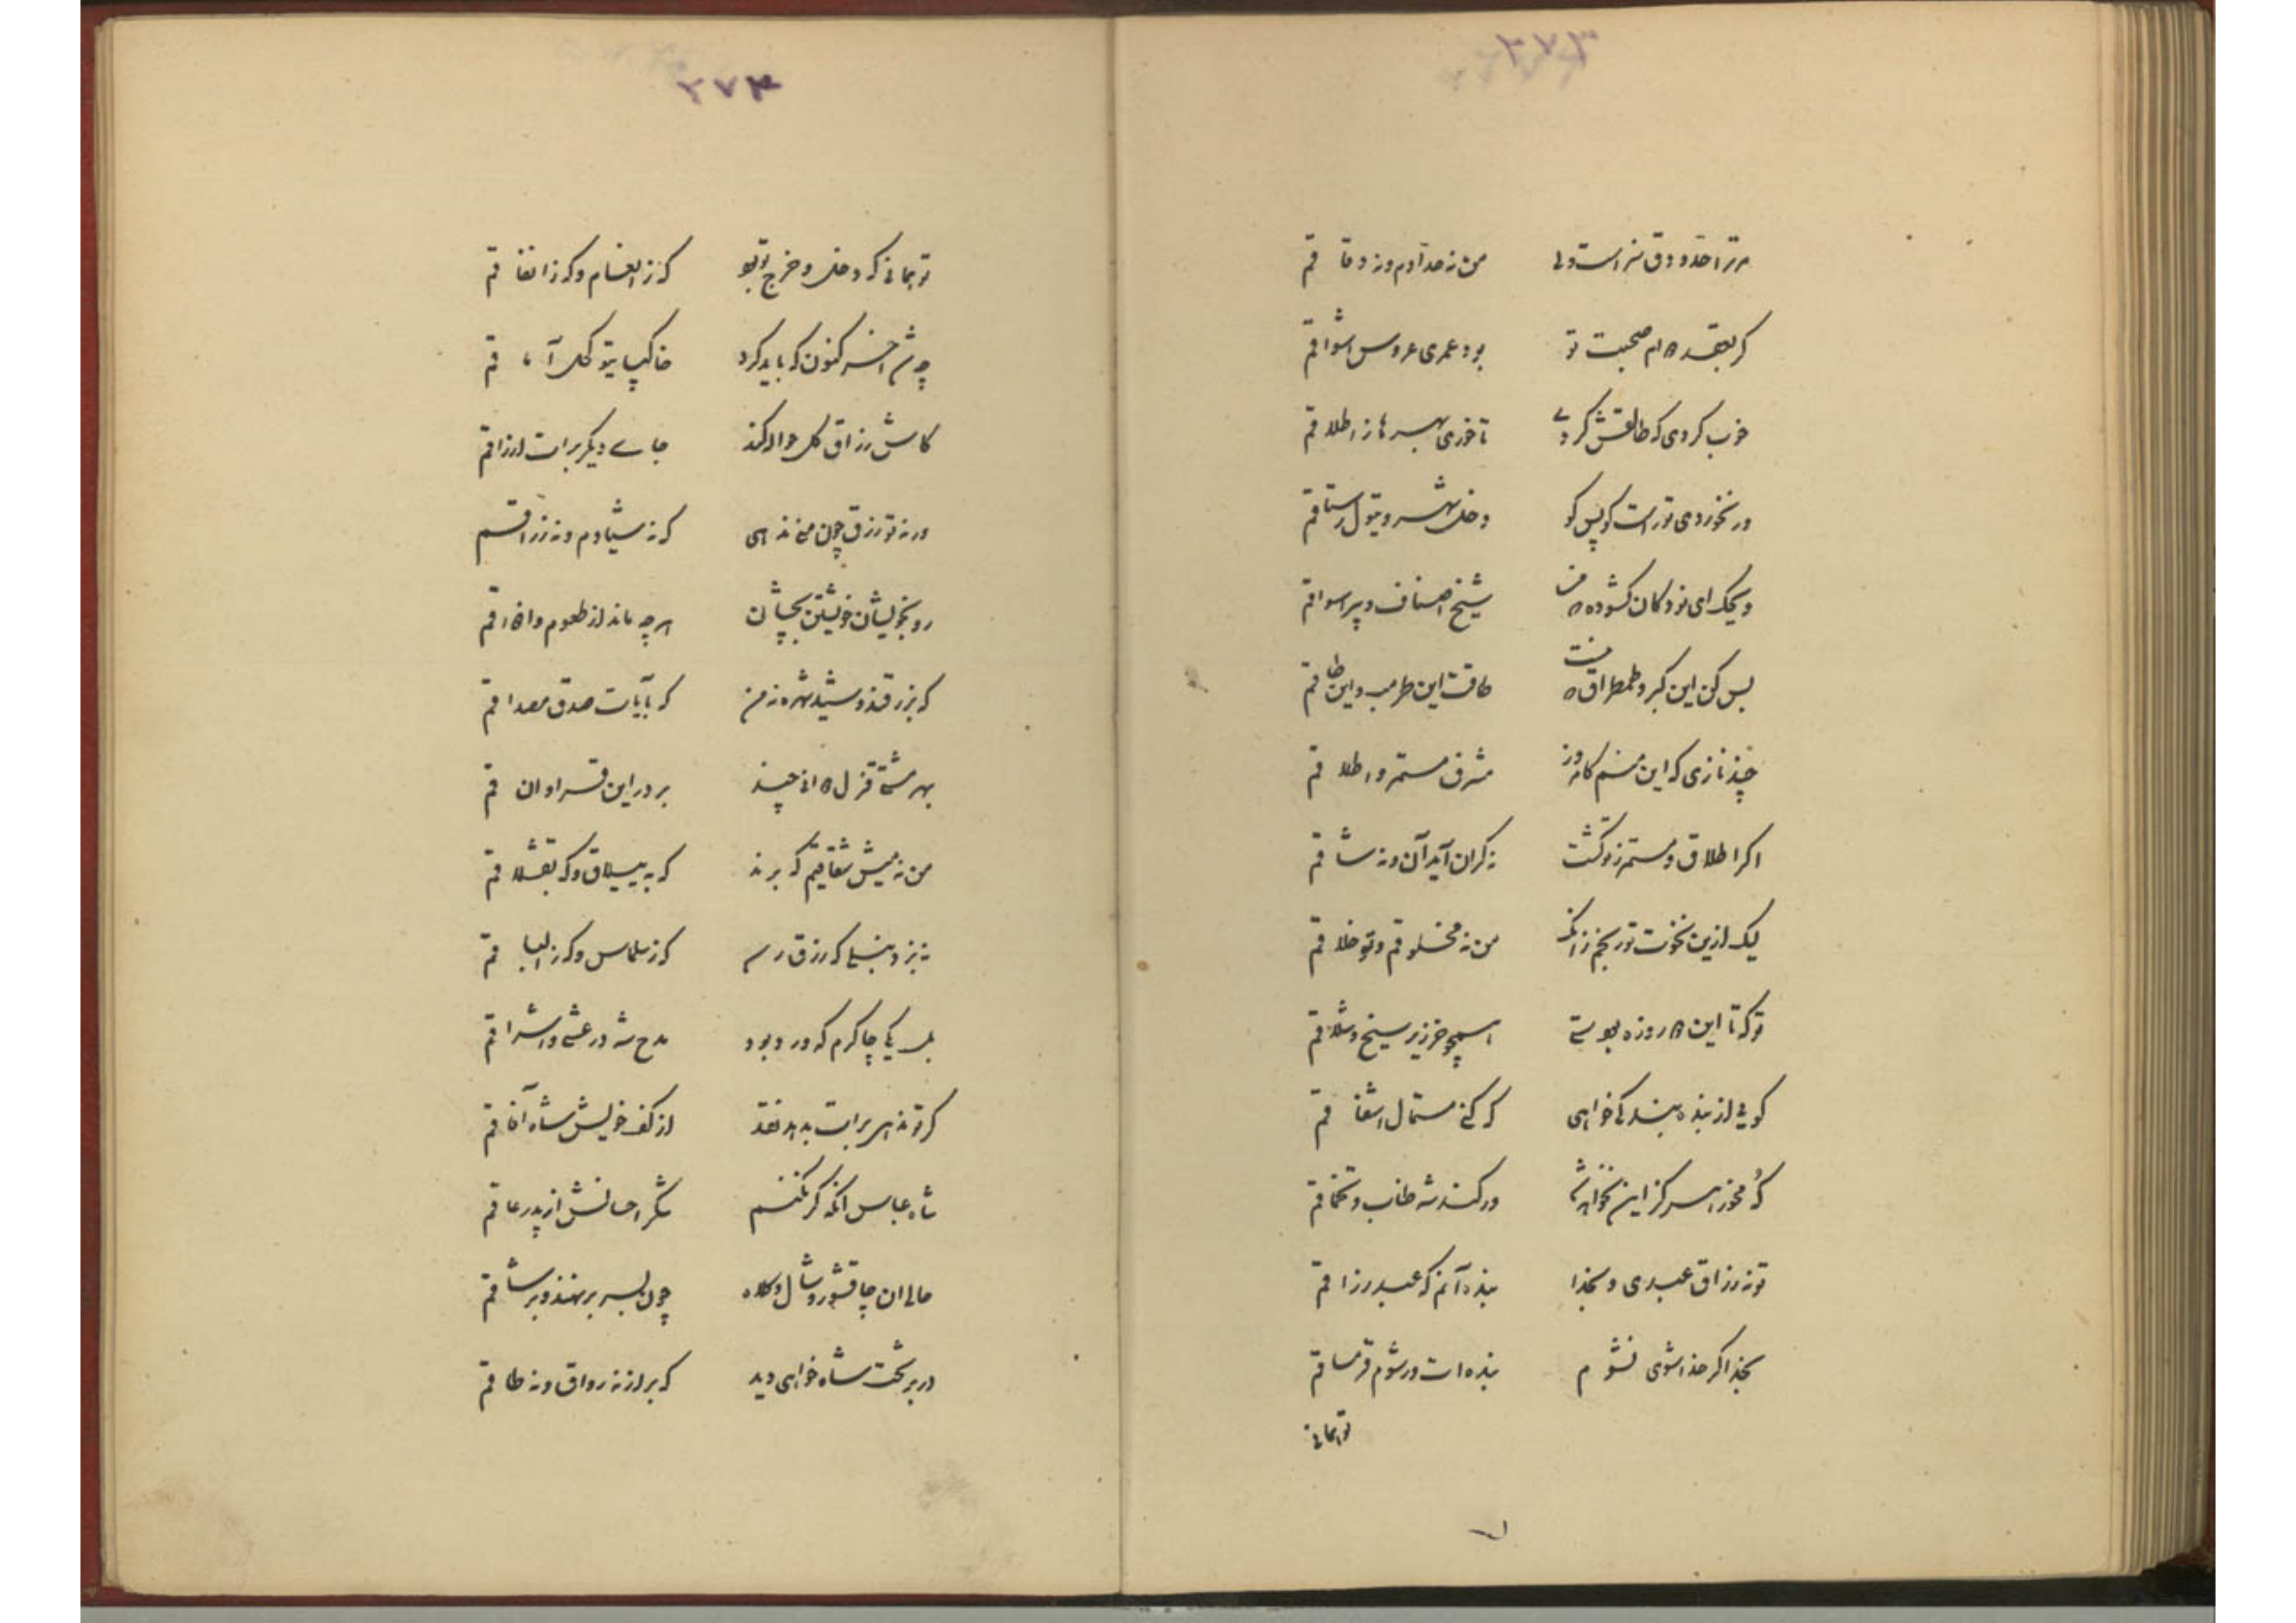 ۲۷۳
من نه حدادم و نه دقاقم
گر بعقد صحبت تو
بود عمری عروس اشواقم
خوب کردی که طالقش کردی
تا خوری بهر ما ز اطلاقم
ور نخوردی تو راست گو پس کو
دخل شهر و تیول رستاقم
ویحک ای نو دکان گشوده
شیخ اصناف و پیر اسواقم
بس کن این کبر و طمطراق
طاقت این طرمب و این طاقم
چند نازی که این منم کامروز
مشرف مستمر و اطلاقم
اگر اطلاق و مستمر ز تو گشت
نه گران آید آن و نه شاقم
لیک ازین نخوت تو رنجم زانک
من نه مخلوقم و تو خلاقم
تو که تا این روزه
همچو خر زیر سیخ و شلاقم
گویی از بنده بندگی خواهی
که کنی مستمال اشفاقم
که مخور هرگز این نخواهد شد
ور کشد شه طناب و تخماقم
تو نه رزاق عبدی و بخدا
بنده آنم که عبد رزاقم
بخدا گر خدا شوی نشوم
بنده ات ور شوم قرمساقم
تو بمانی
۲۷۴
تو بمانی که دخل و خرج تو بو
که ز انعام و که ز انفاقم
چه شد آخر کنون که باید کرد
خاکپای تو کحل آماقم
کاش رزاق کل حواله کند
جای دیگر برات ارزاقم
ورنه تو رزق چون منی ندهی
که نه شیادم و نه زراقم
رو بخویشان خویشتن بچپان
هرچه ماند از طعوم و اذواقم
که بزرقند و شید شهره نه من
که بآیات صدق مصداقم
بهر مشتی قزل چند
بر در این قرا و آن قم
من نه میش شقاقیم که برند
که به ییلاق و که بقشلاقم
نه بز دنبلی که رزق رسد
که ز سلماس و که ز الباقم
بل یکی چاکرم که ورد بود
مدح شه در عشی و اشراقم
گر تو ندهی برات بدهد نقد
از کف خویش شاه آفاقم
شاه عباس آنکه گر نکنم
شکر احسانش از پدر عاقم
حالی آن چاقشور و شال و کلاه
چون بسر بر نهند و بر ساقم
در بر تخت شاه خواهی دید
که برازنه رواق و نه طاقم